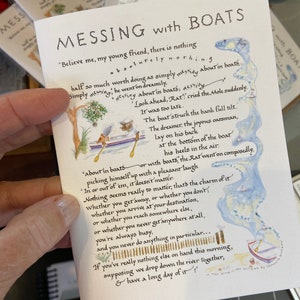 MESSING with BOATS
"Believe me, my young friend, there is nothing
absolutely nothing
half so much worth doing as simply messing about in boats.
Simply messing," he went on dreamily,
"messing about in boats; messing
"Look ahead, Rat!" cried the Mole suddenly
It was too late.
The boat struck the bank full tilt.
The dreamer, the joyous oarsman,
lay on his back
at the bottom of the boat
his heels in the air.
"about in boats — or with boats," the Rat went on composedly,
picking himself up with a pleasant laugh.
"In or out of 'em, it doesn't matter.
Nothing seems really to matter, that's the charm of it.
Whether you get away, or whether you don't,
whether you arrive at your destination,
or whether you reach somewhere else,
or whether you never get anywhere at all,
you're always busy,
and you never do anything in particular....
If you've really nothing else on hand this morning,
supposing we drop down the river together,
& have a long day of it"